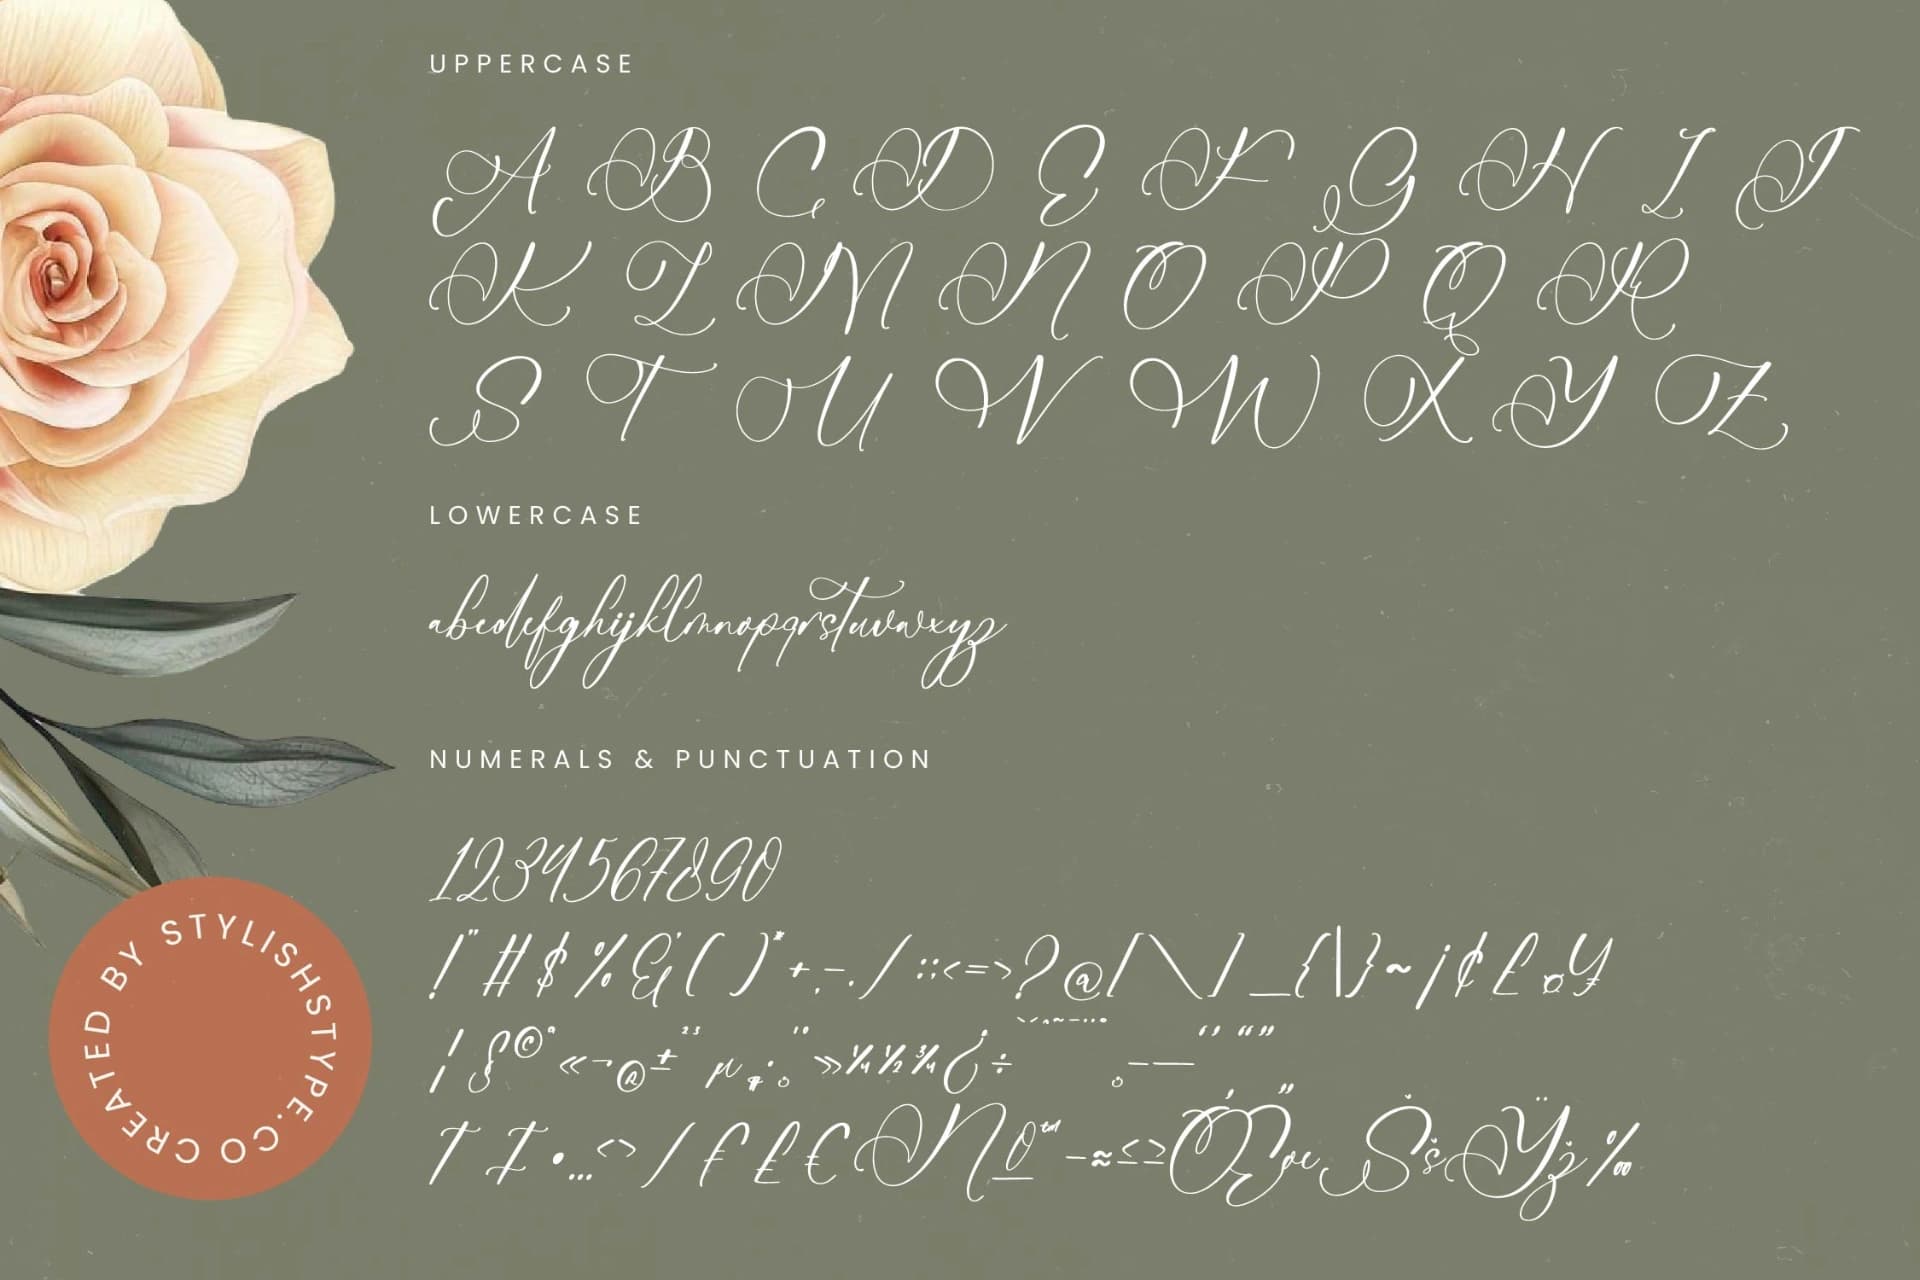 UPPERCASE
A B C D E F G H I J
K L M N O P Q R
S T U V W X Y Z
LOWERCASE
abcdefghijklmnopqrstuvwxyz
NUMERALS & PUNCTUATION
1234567890
!"#$%&'()*+,-./:;<=>?@[\]_{|}~¡¢£¤¥
¦§©ª«¬®±²³µ¶·¸¹º»¼½¾¿÷
†‡•…‹›⁄₣₤€№™−≈≤≥ŐŒœŠšŸž‰
CREATED BY STYLISHSTYPE.CO